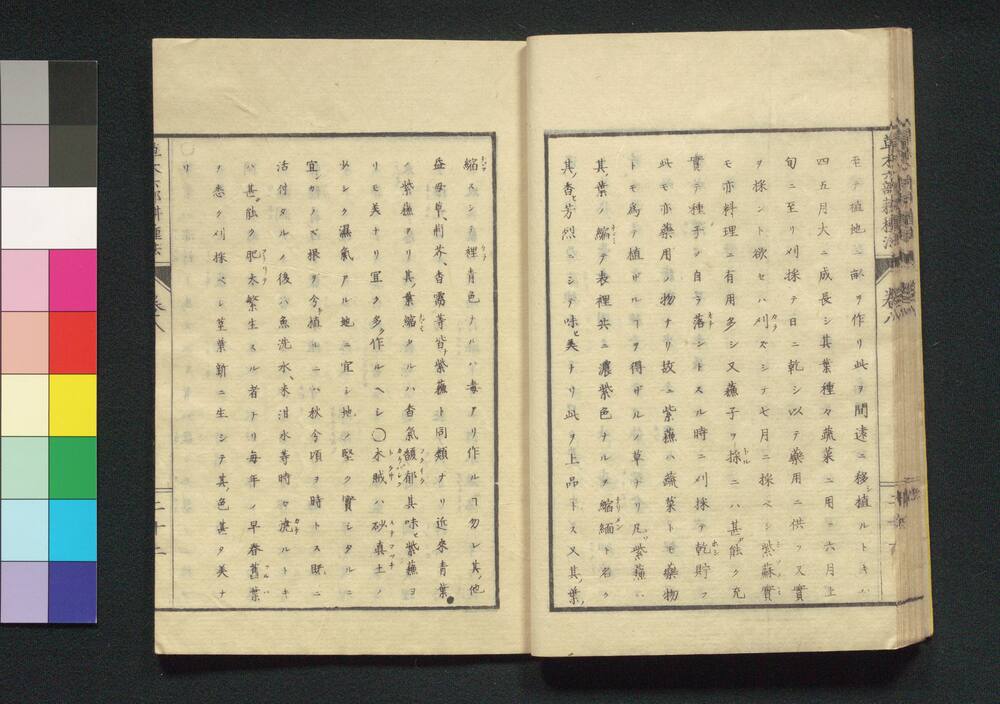 モテ植地ニ畝ヲ作リ此ヲ間遠ニ移植ルトキハ
四五月大ニ成長シ其葉種々蔬菜ニ用ヒ六月上
旬ニ至リ刈採テ日ニ乾シ以テ藥用ニ供フ又實
ヲ採ント欲セハ刈ズシテ七月ニ採ベシ紫蘇實
モ亦料理ニ有用多シ又蘓子ヲ採ニハ甚能ク充
實テ種子ノ自ラ落ントスル時ニ刈採テ乾貯フ
此モ亦藥用ノ物ナリ故ニ紫蘓ハ蔬菜トモ藥物
トモ爲テ植ザルヿヲ得ザルノ草ナリ凡紫蘓ハ
其葉ノ縮テ表裡共ニ濃紫色ナルヲ縮緬ト名ク
其香芳烈ニシテ味モ美ナリ此ヲ上品トス又其葉
縮ズシテ裡青色ナルハ毒アリ作ルヿ勿レ其他
益母草、荊芥、香薷等皆紫蘓ト同類ナリ近來青葉
ノ紫蘓アリ其葉縮タルハ香氣馥郁其味モ紫蘓ヨ
リモ美ナリ宜ク多ク作ルヘシ〇木賊ハ砂真土ノ
少シク濕氣アル地ニ宜シ地ノ堅ク實シタルニ
宜カラズ根ヲ分植ルニハ秋分頃ヲ時トス既ニ
活付タルノ後ハ魚洗水、米泔水等時々澆ルトキ
ハ甚能ク肥大繁生スル者ナリ毎年ノ早春舊葉
ヲ悉ク刈採ベシ莖葉新ニ生シテ其色甚タ美ナ
リ
草木六部耕種法
卷八
二十二